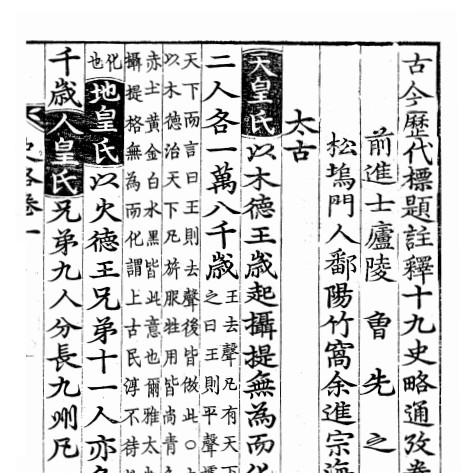 古今歷代標題註釋十九史略通攷
前進士廬陵曾先之
松塢門人鄱陽竹窩余進宗海
太古
天皇氏以木德王歲起攝提無為而化
二人各一萬八千歲
王去聲凡有天下
之曰王則平聲
天下而言曰王則去聲後皆倣此○
以木德治天下凡旂服牲用皆尚青
赤土黃金白水黑皆此意也爾雅太
攝提格無為而化謂上古民淳不待
化也
地皇氏以火德王兄弟十一人亦各
千歲人皇氏兄弟九人分長九州凡
史略卷一